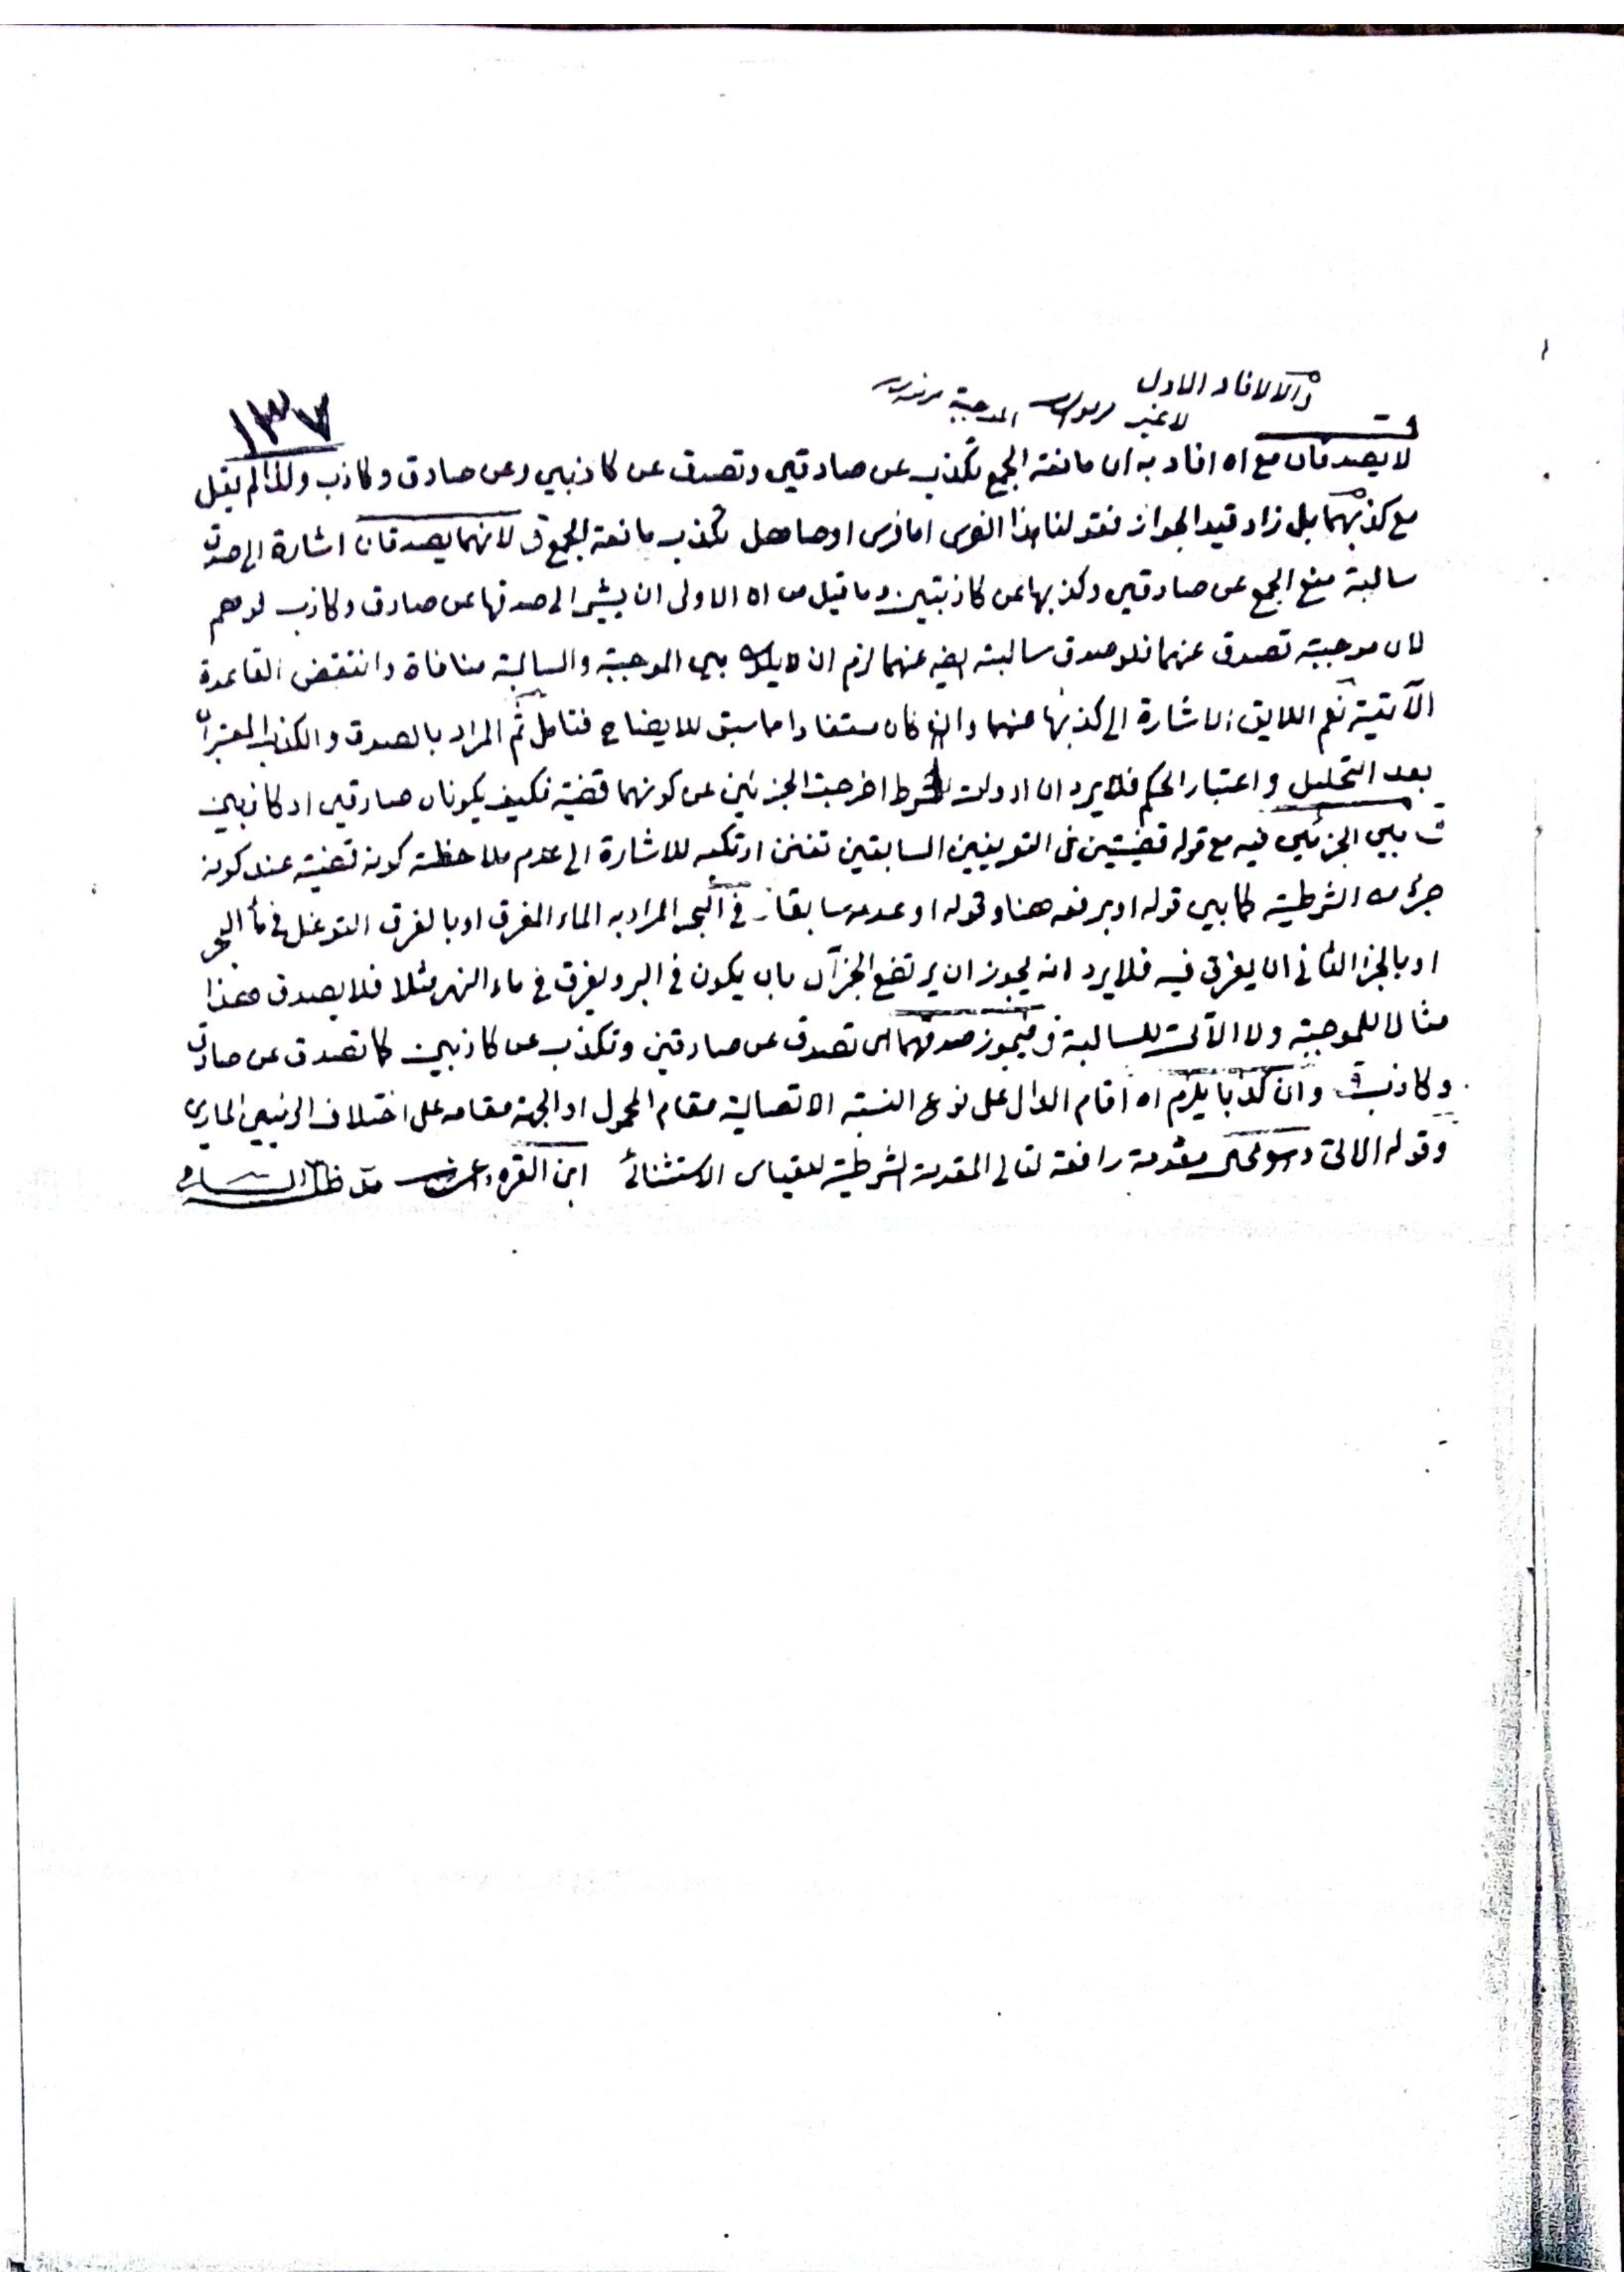 والا لافاد الاول
لا غير الموجبة
١٣٧
لا يصدقان مع اه افاد به ان مانعة الجمع تكذب عن صادقين وتصدق عن كاذبين وعن صادق وكاذب ولذا لم يقل
مع كذبهما بل زاد قيد الجواز فقولنا هذا الفرس اما فرس او صاهل تكذب مانعة الجمع ق لانهما يصدقان اشارة الى صدق
سالبة منع الجمع عن صادقين وكذبها عن كاذبتين وما قيل من اه الاولى ان يشير الى صدقها عن صادق وكاذب
لان موجبته تصدق عنهما فلو صدق سالبته ايضه عنهما لزم ان لا يكون بين الموجبة والسالبة منافاة وانتقض القاعدة
الآتية نعم اللايق الاشارة الى كذبها عنهما وان كان مستفادا مما سبق للايضاح فتامل ثم المراد بالصدق والكذب المعتبران
بعد التحليل واعتبار الحكم فلا يرد ان ادوات الشرط اخرجت الجزئين عن كونهما قضية فكيف يكونان صادقين او كاذبين
ت بين الجزئين فيه مع قوله قضيتين فى التعريفين السابقين تفنن ارتكبه للاشارة الى عدم ملاحظة كونه قضية عند كونه
جزء من الشرطية كما بين قوله او برفعه هنا وقوله او عدمه سابقا فى البحر المراد به الماء المغرق او بالغرق التوغل فى ماء البحر
او بالجزء الثانى ان يغرق فيه فلا يرد انه يجوز ان يرتفع الجزآن بان يكون فى البر ويغرق فى ماء النهر مثلا فلا يصدق هذا
مثالا للموجبة ولا الآتى للسالبة ق فيجوز صدقهما اى تصدق عن صادقين وتكذب عن كاذبين كما تصدق عن صادق
وكاذب ق وان كذبا يلزم اه اقام الدال على نوع النسبة الاتصالية مقام المحمول او الجهة مقامه على اختلاف
وقوله الاتى مقدمة رافعة لتالى المقدمة الشرطية للقياس الاستثنائى ابن القره داغى